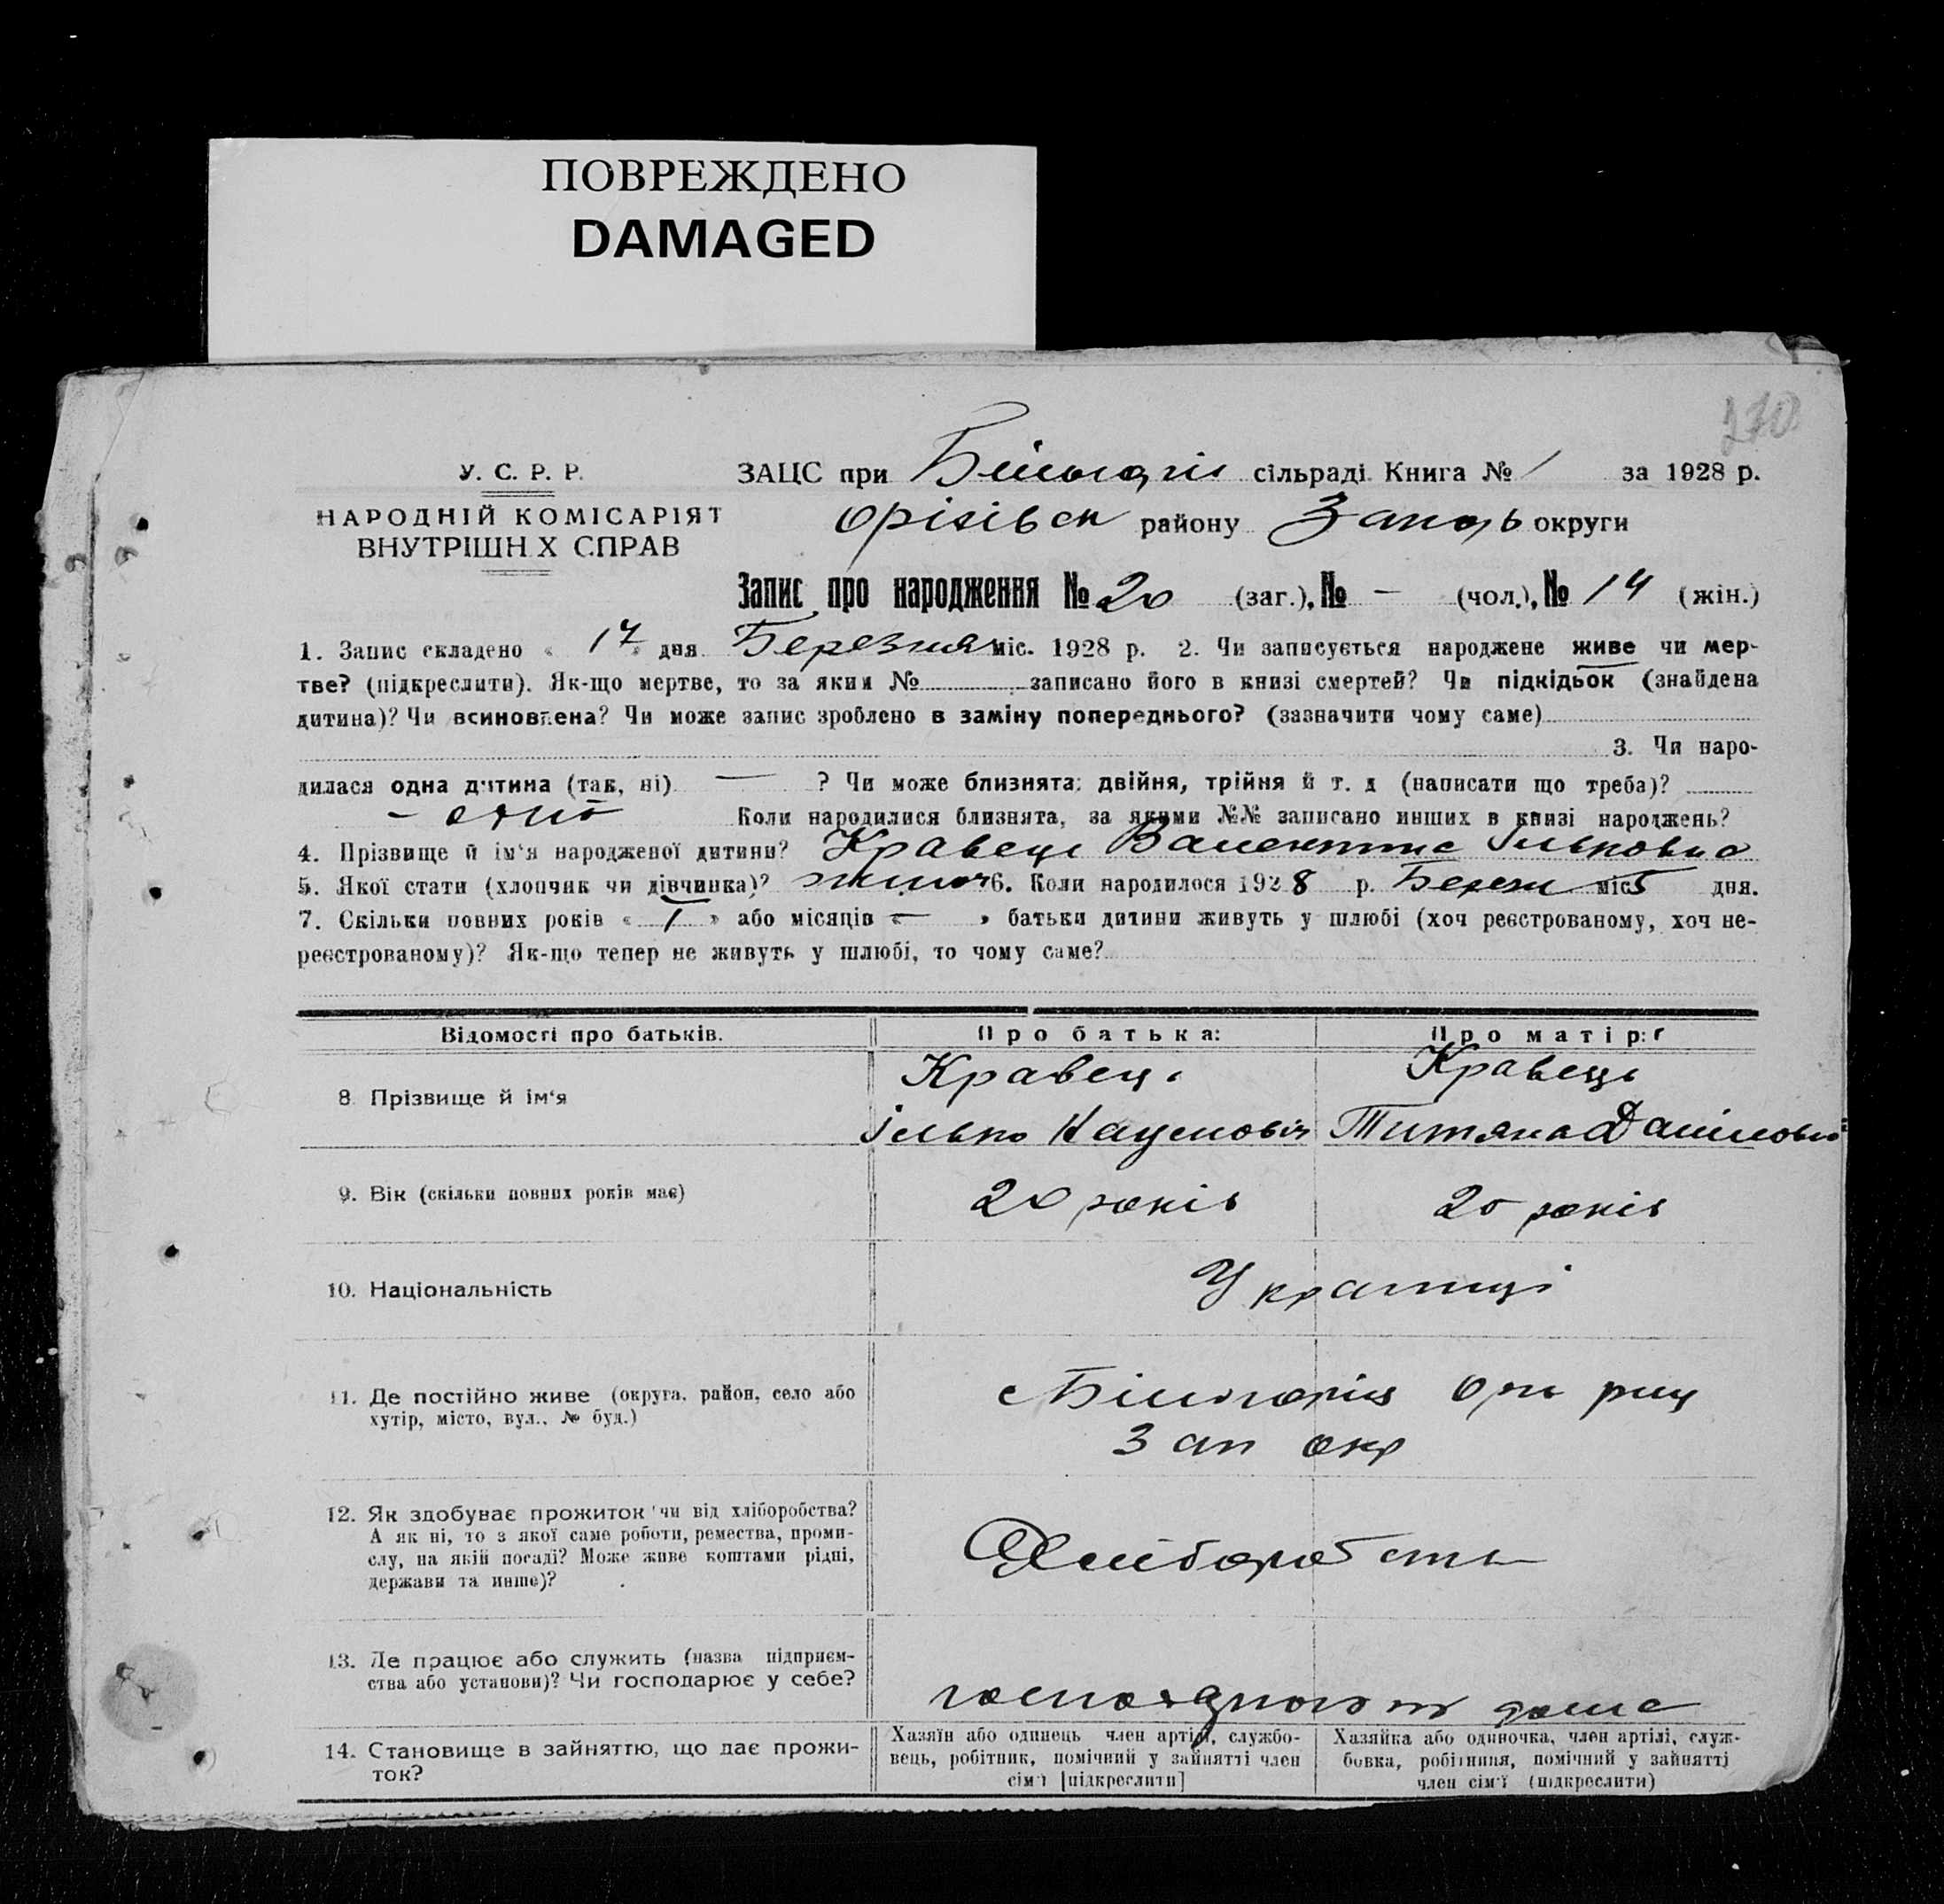 ПОВРЕЖДЕНО
DAMAGED
270
У. С. Р. Р.
НАРОДНІЙ КОМІСАРІЯТ
ВНУТРІШН Х СПРАВ
ЗАЦС при сільраді Книга № 1 за 1928 р.
Орiхiвск району Запор округи
Запис про народження № 20 (заг.), № — (чол.), № 14 (жін.)
1. Запис складено « 17 » дня Березня міс. 1928 р. 2. Чи записується народжене живе чи мер-
тве? (підкреслити). Як-що мертве, то за яким № записано його в книзі смертей? Чи підкідьок (знайдена
дитина)? Чи всиновлена? Чи може запис зроблено в заміну попереднього? (зазначити чому саме)
3. Чи наро-
дилася одна дитина (так, ні) — ? Чи може близнята: двійня, трійня й т. д (написати що треба)?
– одно Коли народилися близнята, за якими №№ записано инших в книзі народжень?
4. Прізвище й ім'я народженої дитини? Кравець Валентина Ільковна
5. Якої стати (хлопчик чи дівчинка)? жіноч 6. Коли народилося 1928 р. Березн міс 5 дня.
7. Скільки повних років « 1 » або місяців « — » батьки дитини живуть у шлюбі (хоч реєстрованому, хоч не-
реєстрованому)? Як-що тепер не живуть у шлюбі, то чому саме?
Відомості про батьків. Про батька: Про матір:
8 Прізвище й ім'я
Кравець Кравець
Ілько Наумовіч Титяна Данiловна
9. Вік (скільки повних років має) 20 років 20 років
10. Національність Українці
11. Де постійно живе (округа, район, село або
хутір, місто, вул., № буд.)
с Ор рну
Зап окр
12. Як здобуває прожиток чи від хліборобства?
А як ні, то з якої саме роботи, ремества, проми-
слу, на якій посаді? Може живе коштами рідні,
держави та инше)?
Хліборобств
13. Де працює або служить (назва підприєм-
ства або установи)? Чи господарює у себе?
дома
14. Становище в зайняттю, що дає прожи-
ток?
Хазяїн або одинець член артілі, службо-
вець, робітник, помічний у зайнятті член
сім'ї [підкреслити]
Хазяйка або одиночка, член артілі, служ-
бовка, робітниця, помічний у зайнятті
член сім'ї (підкреслити)